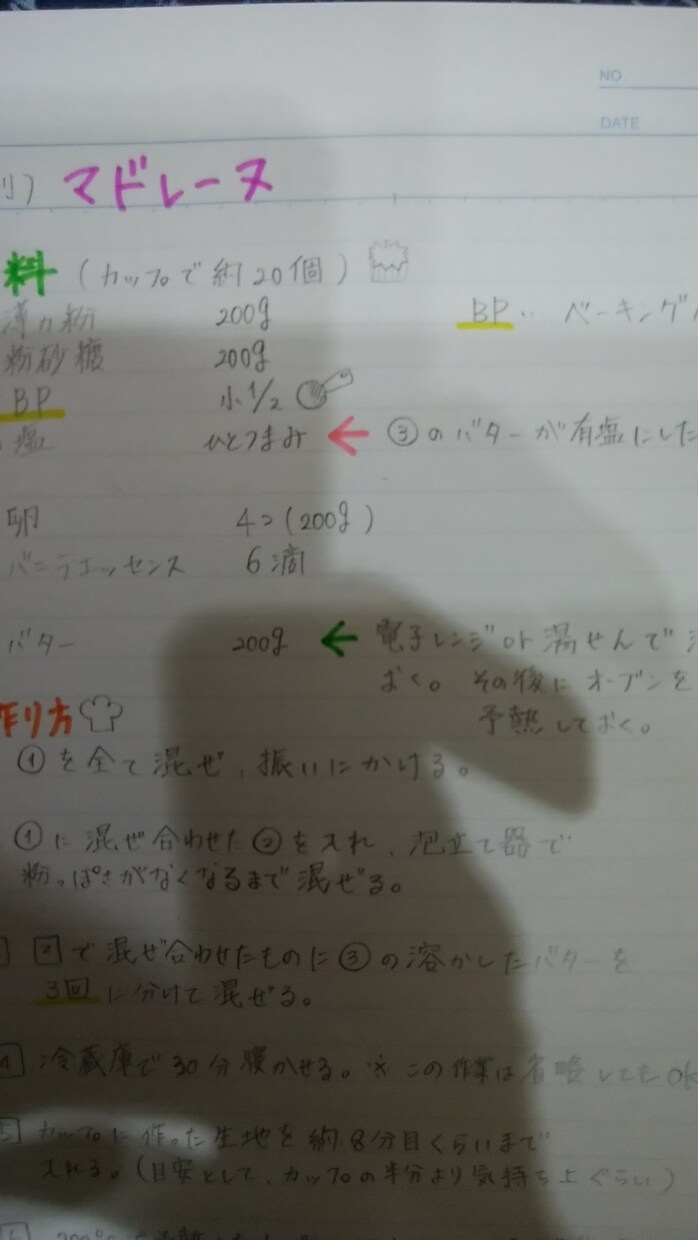 NO
DATE
マドレーヌ
料 (カップで約20個)
薄力粉 200g BP‥ベーキング
粉砂糖 200g
BP 小1/2
塩 ひとつまみ ← ③のバターが有塩にした
卵 4コ(200g)
バニラエッセンス 6滴
バター 200g ← 電子レンジor湯せんで
おく。その後にオーブンを
予熱しておく。
作り方
①を全て混ぜ、振いにかける。
①に混ぜ合わせた②を入れ、泡立て器で
粉っぽさがなくなるまで混ぜる。
2で混ぜ合わせたものに③の溶かしたバターを
3回に分けて混ぜる。
4 冷蔵庫で30分寝かせる。※この作業は省略してもOK
5 カップに作った生地を約8分目くらいまで
入れる。(目安として、カップの半分より気持ち上ぐらい)